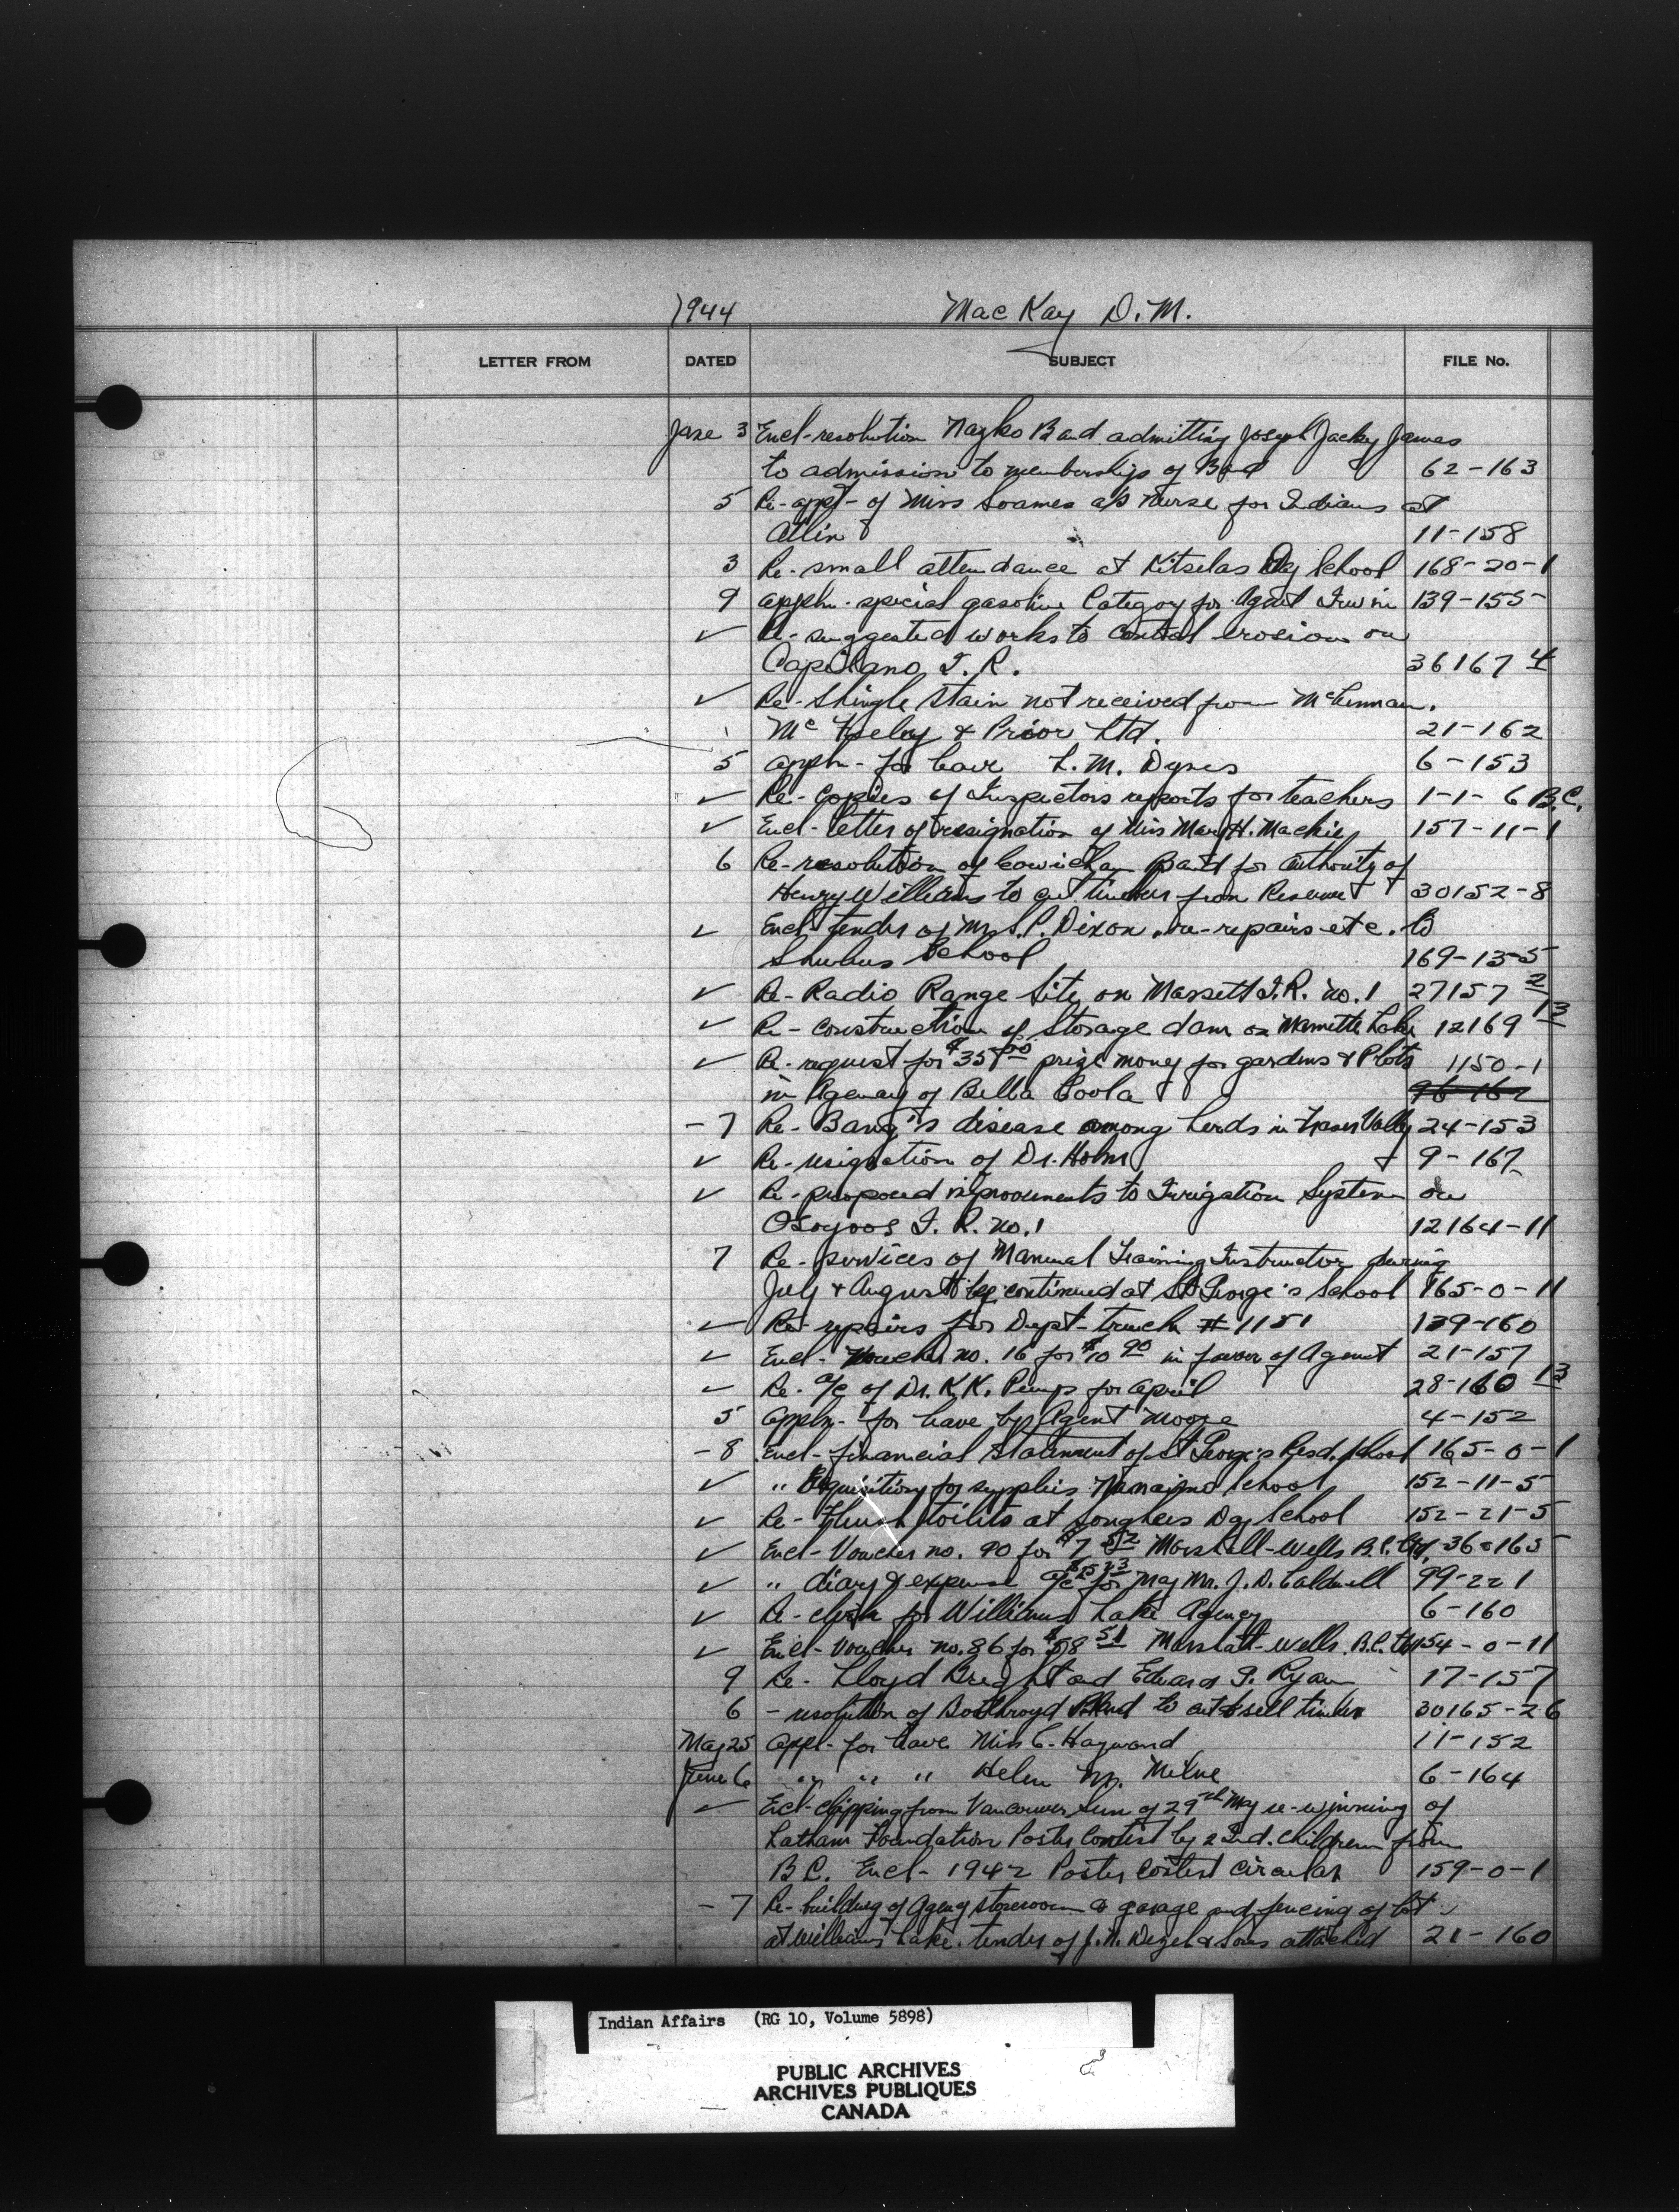 1944 MacKay D.M.
LETTER FROM DATED SUBJECT FILE No.
June 3 Encl-resolution Nazko Band admitting Joseph Jacky James
to admission to membership of Band 62-163
5 Re-appt- of Miss Soames as Nurse for Indians at
Atlin 11-158
3 Re-small attendance at Kitselas Day School 168-20-1
9 appln. special gasoline Category for Agent Irwin 139-155
✓ Re-suggested works to control erosion on
Capilano I.R. 36167 4
✓ Re-Shingle Stain not received from McLennan.
Mc Feeley & Prior Ltd. 21-162
5 appln- for leave L.M. Dynes 6-153
✓ Re-Copies of Inspectors reports for teachers 1-1-6 B.C.
✓ Encl-letter of resignation of Miss Mary H. Mackie 157-11-1
6 Re-resolution of Cowichan Band for authority of
Henry Williams to cut timber from Reserve 30152-8
✓ Encl-tender of Mr. S.P. Dixon, re-repairs etc. to
Shulus School 169-13-5
✓ Re-Radio Range Site on Massett I.R. no.1 27157 2
✓ Re-construction of Storage dam on Mamette Lake 12169 13
✓ Re-request for $35.00 prize money for gardens & Plots 1150-1
in Agency of Bella Coola 96-162
-7 Re-Bang's disease among herds in Fraser Valley 24-153
✓ Re-resignation of Dr. Holm 9-167
✓ Re-proposed improvements to Irrigation System on
Osoyoos I.R. no.1 12164-11
7 Re-services of Manual Training Instructor during
July & August be continued at St George's School 165-0-11
✓ Re-repairs for Dept-truck #1151 139-160
✓ Encl-Voucher no. 16 for $10 90 in favor of Agent 21-157
✓ Re-a/c of Dr. K.K. Pump for april 28-160 13
5 appln- for leave by Agent Moore 4-152
-8 Encl-financial Statement of St George's Resd. School 165-0-1
✓ " Requisition for supplies Nanaimo School 152-11-5
✓ Re-Flush toilets at Songhees Day School 152-21-5
✓ Encl-Voucher no. 90 for $7 52 Marshall-Wells B.C. Ltd. 36-165
✓ " diary & expense a/c for May Mr. J.D. Caldwell 99-221
✓ Re-clerk for Williams Lake Agency 6-160
✓ Encl-Voucher no.86 for $58 51 Marshall-Wells B.C. Ltd 154-0-11
9 Re-Lloyd Bright and Edward P. Ryan 17-157
6 -resolution of Boothroyd Band to cut & sell timber 30165-26
May 25 appl- for leave Miss C. Hayward 11-152
June 6 " " " Helen M. Milne 6-164
✓ Encl-clipping from Vancouver Sun of 29th May re-winning of
Latham Foundation Poster Contest by 2 Ind. children from
B.C. Encl-1942 Poster Contest Circular 159-0-1
-7 Re-building of Agency storeroom & garage and fencing of lot
at Williams Lake. tender of J.N. & Sons attached 21-160
Indian Affairs (RG 10, Volume 5898)
PUBLIC ARCHIVES
ARCHIVES PUBLIQUES
CANADA